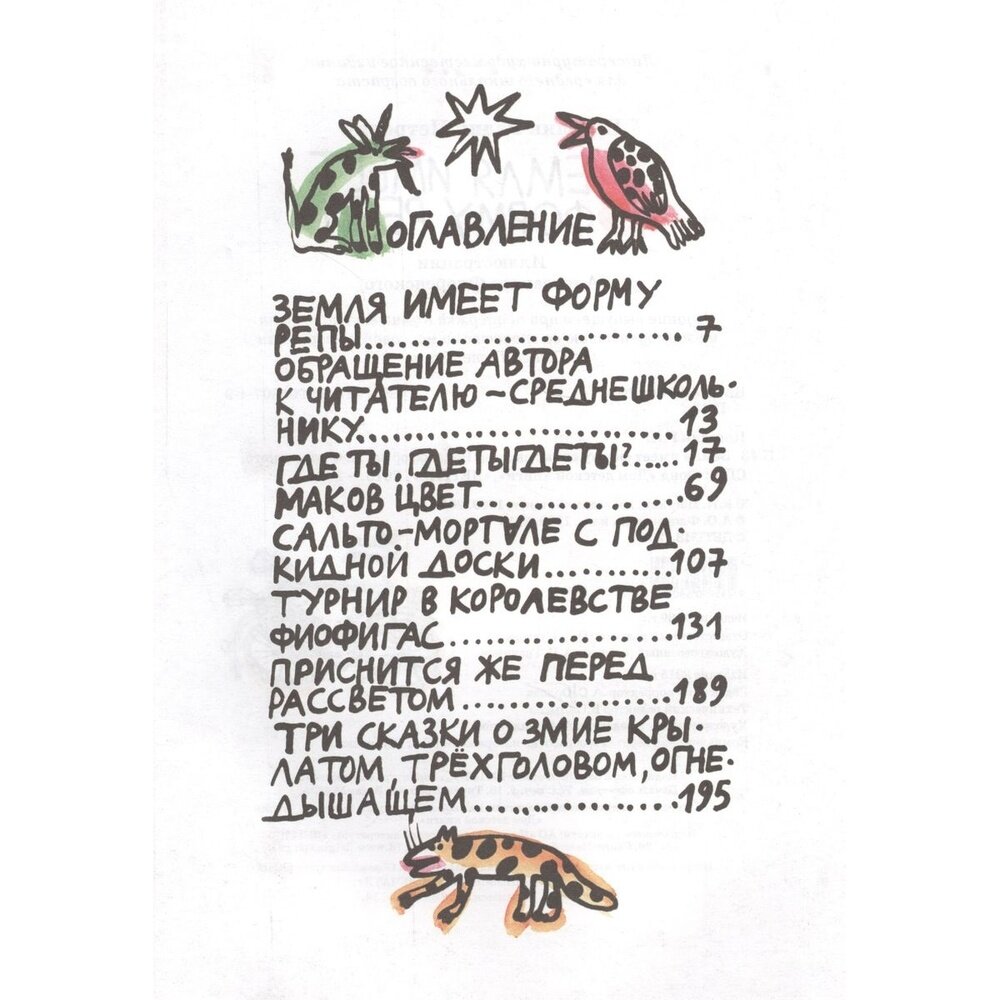 ОГЛАВЛЕНИЕ
ЗЕМЛЯ ИМЕЕТ ФОРМУ
РЕПЫ.............................. 7
ОБРАЩЕНИЕ АВТОРА
К ЧИТАТЕЛЮ - СРЕДНЕШКОЛЬ-
НИКУ..............................13
ГДЕ ТЫ, ГДЕТЫГДЕТЫ?.....17
МАКОВ ЦВЕТ....................69
САЛЬТО-МОРТАЛЕ С ПОД-
КИДНОЙ ДОСКИ...........107
ТУРНИР В КОРОЛЕВСТВЕ
ФИОФИГАС....................131
ПРИСНИТСЯ ЖЕ ПЕРЕД
РАССВЕТОМ..................189
ТРИ СКАЗКИ О ЗМИЕ КРЫ-
ЛАТОМ, ТРЁХГОЛОВОМ, ОГНЕ-
ДЫШАЩЕМ..................195